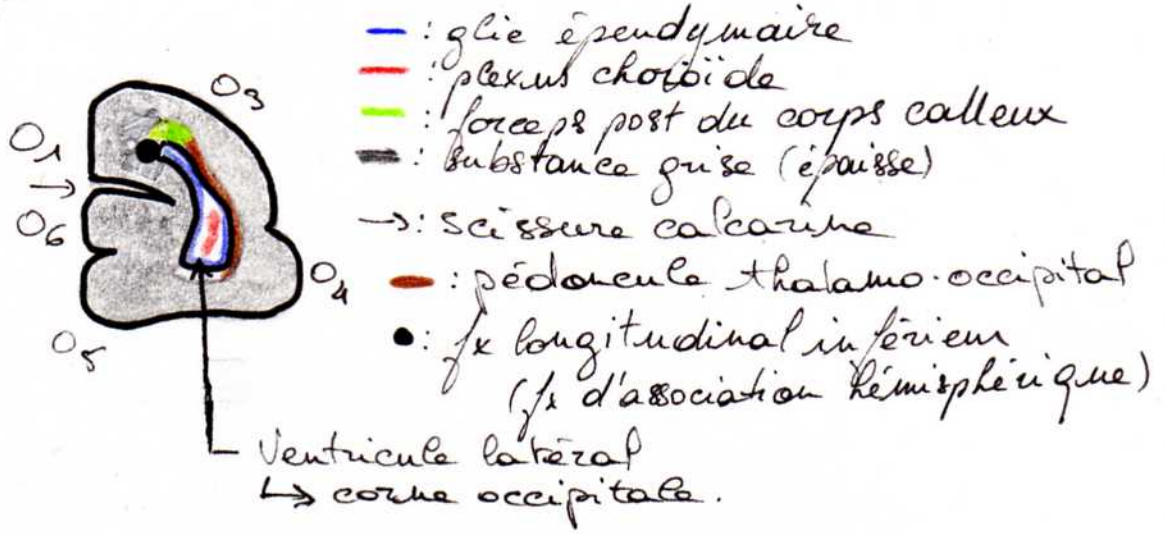 : glie épendymaire
: plexus choroïde
: forceps post du corps calleux
: substance grise (épaisse)
→: scissure calcarine
: pédoncule thalamo-occipital
: fx longitudinal inférieur
(fx d'association hémisphérique)
O3
O1
→
O6
O4
O5
Ventricule latéral
↳ corne occipitale.